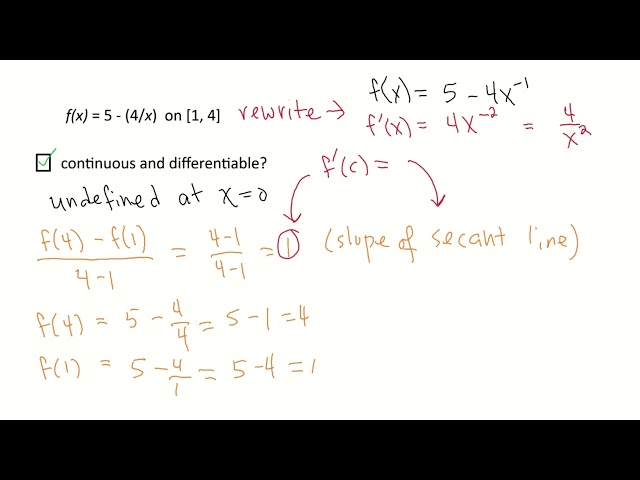 f(x) = 5 - 4x⁻¹
f(x) = 5 - (4/x) on [1, 4] rewrite → f'(x) = 4x⁻² = 4/x²
continuous and differentiable? f'(c) =
undefined at x=0
(f(4) - f(1))/(4-1) = (4-1)/(4-1) = 1 (slope of secant line)
f(4) = 5 - 4/4 = 5 - 1 = 4
f(1) = 5 - 4/1 = 5 - 4 = 1